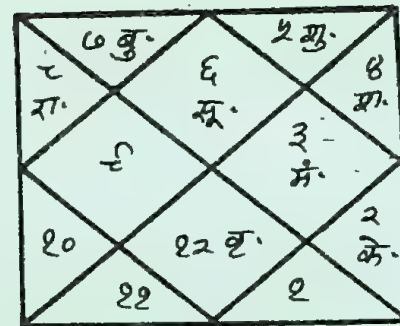 ७ बु·
५ शु·
८
रा·
६
सू·
४
९
३
मं·
१०
१२ बृ·
२
के·
११
१